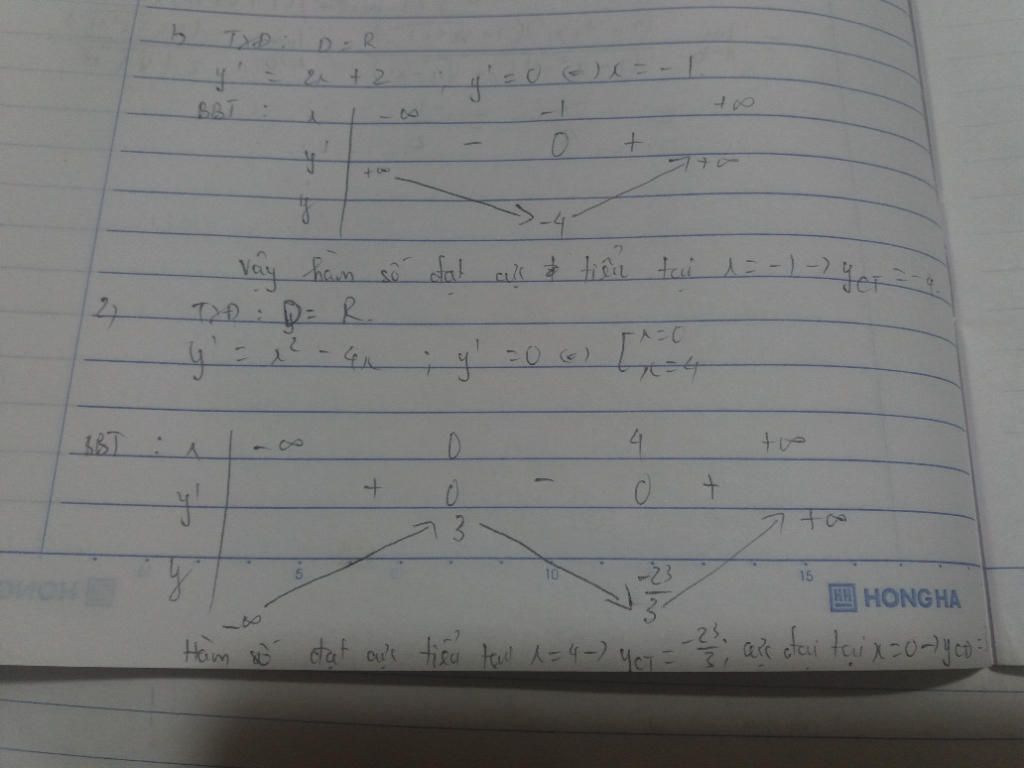 1, TXĐ: D = R
y' = 2x + 2 ; y' = 0 (=) x = -1
BBT : x -∞ -1 +∞
y' - 0 +
y +∞ -4 +∞
Vậy hàm số đạt cực tiểu tại x = -1 -> yCT = -4.
2, TXĐ : D = R.
y' = x² - 4x ; y' = 0 (=) [ x = 0
x = 4
BBT : x -∞ 0 4 +∞
y' + 0 - 0 +
y -∞ 3 -23/3 +∞
5 10 15
HONG HA
Hàm số đạt cực tiểu tại x = 4 -> yCT = -23/3; cực đại tại x = 0 -> yCĐ =